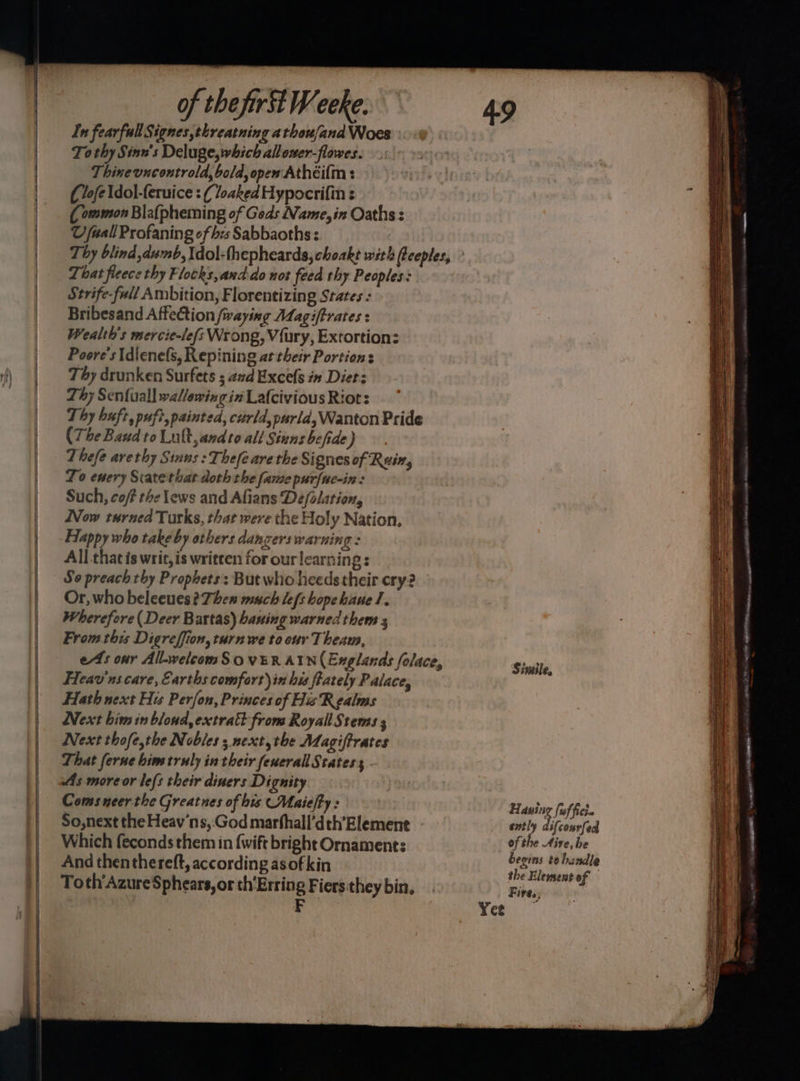 of the first Weeke. 49
In fearfull Signes, threatning a thouſand Woes
To thy Sinn's Deluge, which all ouer-flowes.
Thine vncontrold, bold, open Athëiſm:
Cloſe Idol-ſeruice: Cloaked Hypocriſin:
Common Blaſpheming of Gods Name, in Oaths:
Vſuall Profaning of his Sabbaoths:
Thy blind, dumb, Idol-ſhepheards, choakt with ſteeples,
That fleece thy Flocks, and do not feed thy Peoples:
Strife-full Ambition, Florentizing States:
Bribes and Affection ſwaying Magiſtrates:
Wealth's mercie-leſs Wrong, Vſury, Extortion:
Poore's Idleneſs, Repining at their Portion:
Thy drunken Surfets; and Exceſs in Diet:
Thy Senſuall wallowing in Laſcivious Riot:
Thy huft, puft, painted, curld, purld, Wanton Pride
(The Baud to Luſt, and to all Sinns beſide)
Theſe are thy Sinns: Theſe are the Signes of Ruin,
To euery State that doth the ſame purſue-in:
Such, coſt the Iews and Aſians Deſolation,
Now turned Turks, that were the Holy Nation.
Happy who take by others dangers warning:
All that is writ, is written for our learning:
So preach thy Prophets: But who heeds their cry?
Or, who beleeues? Then much leſs hope haue I.
Wherefore (Deer Bartas) hauing warned them;
From this Digreſſion, turn we to our Theam.
As our All-welcom SOVERAIN (Englands ſolace,
Heav'ns care, Earths comfort) in his ſtately Palace,
Simile.
Hath next His Perſon, Princes of His Realms
Next him in bloud, extract from Royall Stems;
Next thoſe, the Nobles; next, the Magiſtrates
That ſerue him truly in their ſeuerall States;
As more or leſs their diuers Dignity
Coms neer the Greatnes of his Maieſty:
So, next the Heav'ns, God marſhall'd th'Element
Which ſeconds them in ſwift bright Ornament:
And then the reſt, according as of kin
To th'Azure Sphears, or th'Erring Fiers they bin.
Hauing ſuffici-
ently diſcourſed
of the Aire, he
begins to handle
the Element of
Fire.
F
Yet